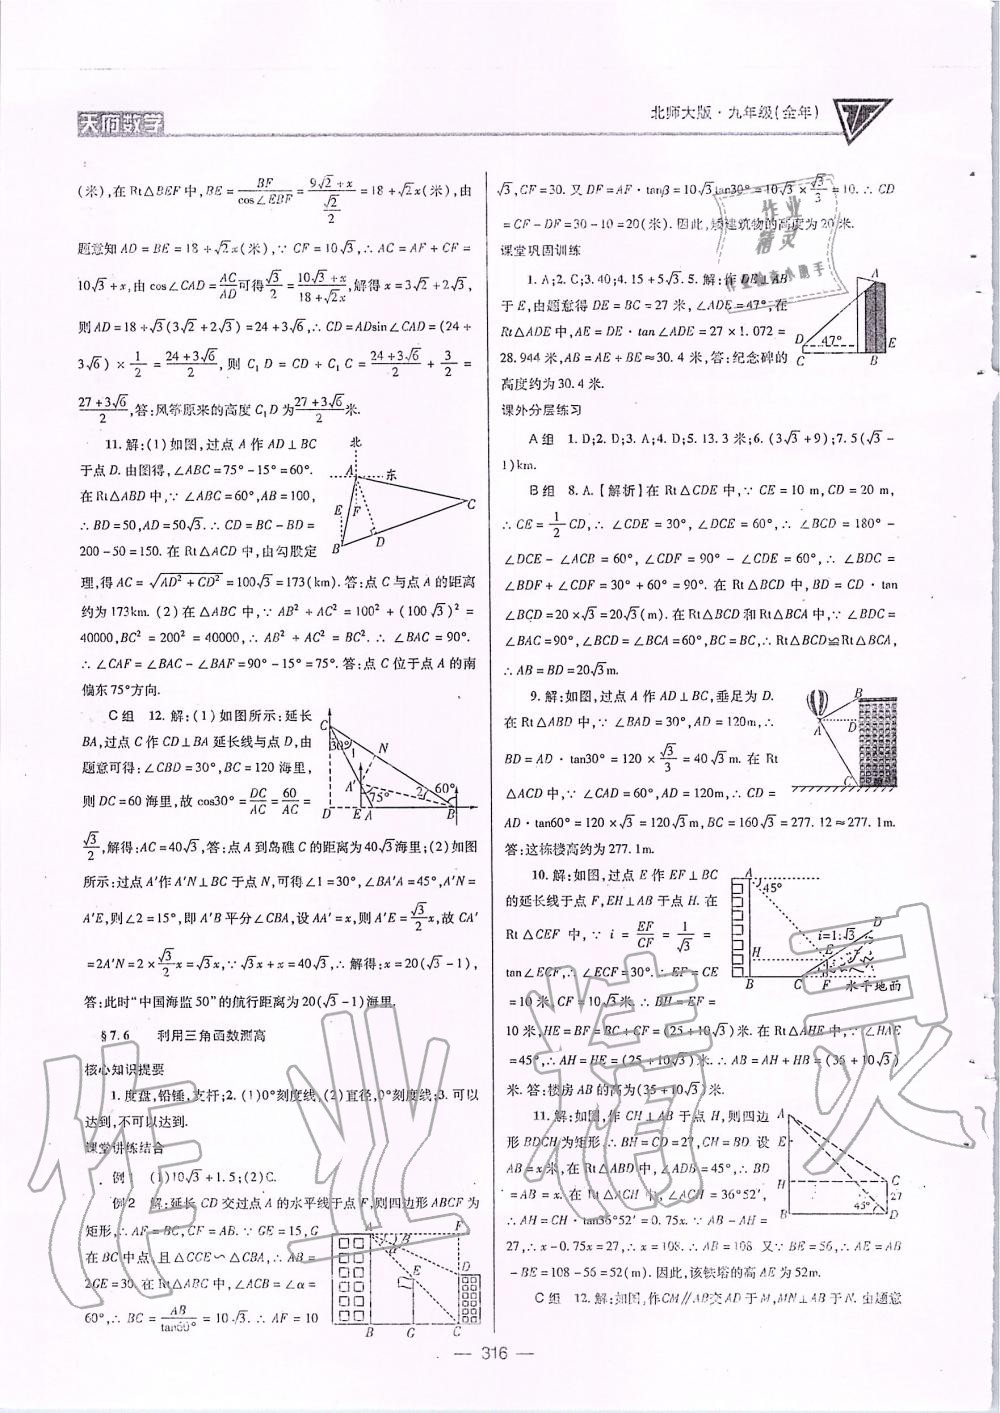 天府数学
北师大版·九年级(全年)
(米),在 Rt△BEF 中,BE = BF/cos∠EBF = (9√2+x)/(√2/2) = 18+√2x(米),由
题意知 AD = BE = 18+√2x(米),∵ CF = 10√3,∴ AC = AF + CF =
10√3+x,由 cos∠CAD = AC/AD 可得 √3/2 = (10√3+x)/(18+√2x),解得 x = 3√2+2√3,
则 AD = 18+√3(3√2+2√3) = 24+3√6,∴ CD = ADsin∠CAD = (24+
3√6) × 1/2 = (24+3√6)/2, 则 C₁D = CD + C₁C = (24+3√6)/2 + 3/2 =
(27+3√6)/2,答:风筝原来的高度 C₁D 为 (27+3√6)/2 米.
11. 解:(1) 如图,过点 A 作 AD⊥BC
于点 D. 由图得,∠ABC = 75° - 15° = 60°.
在 Rt△ABD 中,∵ ∠ABC = 60°,AB = 100,
∴ BD = 50,AD = 50√3. ∴ CD = BC - BD =
200 - 50 = 150. 在 Rt△ACD 中,由勾股定
理,得 AC = √(AD² + CD²) = 100√3 ≈ 173(km). 答:点 C 与点 A 的距离
约为 173km. (2) 在 △ABC 中,∵ AB² + AC² = 100² + (100√3)² =
40000,BC² = 200² = 40000,∴ AB² + AC² = BC². ∴ ∠BAC = 90°.
∴ ∠CAF = ∠BAC - ∠BAF = 90° - 15° = 75°. 答:点 C 位于点 A 的南
偏东 75° 方向.
C 组 12. 解:(1) 如图所示:延长
BA,过点 C 作 CD⊥BA 延长线与点 D,由
题意可得:∠CBD = 30°,BC = 120 海里,
则 DC = 60 海里,故 cos30° = DC/AC = 60/AC =
√3/2,解得:AC = 40√3,答:点 A 到岛礁 C 的距离为 40√3 海里;(2) 如图
所示:过点 A′ 作 A′N⊥BC 于点 N,可得∠1 = 30°,∠BA′A = 45°,A′N =
A′E,则∠2 = 15°,即 A′B 平分∠CBA,设 AA′ = x,则 A′E = √3/2 x,故 CA′
= 2A′N = 2 × √3/2 x = √3x,∵ √3x + x = 40√3,∴ 解得:x = 20(√3 - 1),
答:此时“中国海监 50”的航行距离为 20(√3 - 1) 海里.
§7.6 利用三角函数测高
核心知识提要
1. 度盘,铅锤,支杆;2. (1)0°刻度线;(2) 直径,0°刻度线;3. 可以
达到,不可以达到.
课堂讲练结合
例1 (1)10√3+1.5;(2)C.
例2 解:延长 CD 交过点 A 的水平线于点 F,则四边形 ABCF 为
矩形,∴ AF = BC,CF = AB. ∵ GE = 15,G
在 BC 中点,且 △CCE ∽ △CBA,∴ AB =
2GE = 30. 在 Rt△ABC 中,∠ACB = ∠α =
60°,∴ BC = AB/tan60° = 10√3. ∴ AF = 10
√3,CF = 30. 又 DF = AF·tanβ = 10√3tan30° = 10√3 × √3/3 = 10. ∴ CD
= CF - DF = 30 - 10 = 20(米). 因此,矮建筑物的高度为 20 米.
课堂巩固训练
1. A;2. C;3. 40;4. 15+5√3. 5. 解:作 DE⊥AB
于 E,由题意得 DE = BC = 27 米,∠ADE = 47°,在
Rt△ADE 中,AE = DE·tan∠ADE = 27 × 1.072 =
28.944 米,AB = AE + BE ≈ 30.4 米,答:纪念碑的
高度约为 30.4 米.
课外分层练习
A 组 1. D;2. D;3. A;4. D;5. 13.3 米;6. (3√3+9);7. 5(√3-
1)km.
B 组 8. A.【解析】在 Rt△CDE 中,∵ CE = 10 m,CD = 20 m,
∴ CE = 1/2 CD,∴ ∠CDE = 30°,∠DCE = 60°,∴ ∠BCD = 180° -
∠DCE - ∠ACB = 60°,∠CDF = 90° - ∠CDE = 60°,∴ ∠BDC =
∠BDF + ∠CDF = 30° + 60° = 90°. 在 Rt△BCD 中,BD = CD·tan
∠BCD = 20 × √3 = 20√3(m). 在 Rt△BCD 和 Rt△BCA 中,∵ ∠BDC =
∠BAC = 90°,∠BCD = ∠BCA = 60°,BC = BC,∴ Rt△BCD≌Rt△BCA,
∴ AB = BD = 20√3m.
9. 解:如图,过点 A 作 AD⊥BC,垂足为 D.
在 Rt△ABD 中,∵ ∠BAD = 30°,AD = 120m,∴
BD = AD·tan30° = 120 × √3/3 = 40√3m,在 Rt
△ACD 中,∵ ∠CAD = 60°,AD = 120m,∴ CD =
AD·tan60° = 120 × √3 = 120√3m,BC = 160√3 = 277.12 ≈ 277.1m.
答:这栋楼高约为 277.1m.
10. 解:如图,过点 E 作 EF⊥BC
的延长线于点 F,EH⊥AB 于点 H. 在
Rt△CEF 中,∵ i = EF/CF = 1/√3 =
tan∠ECF,∴ ∠ECF = 30°,∴ EF = CE
= 10 米,CF = 10√3 米,∴ BH = EF =
10 米,HE = BF = BC + CF = (25+10√3) 米. 在 Rt△AHE 中,∵ ∠HAE
= 45°,∴ AH = HE = (25+10√3) 米,∴ AB = AH + HB = (35+10√3)
米. 答:楼房 AB 的高为 (35+10√3) 米.
11. 解:如图,作 CH⊥AB 于点 H,则四边
形 BDCH 为矩形,∴ BH = CD = 27,CH = BD. 设
AB = x 米,在 Rt△ABD 中,∠ADB = 45°,∴ BD
= AB = x. 在 Rt△ACH 中,∠ACH = 36°52′,
∴ AH = CH·tan36°52′ = 0.75x. ∵ AB - AH = BH =
27,∴ x - 0.75x = 27,∴ x = 108. ∴ AB = 108. 又 ∵ BE = 56,∴ AE = AB
- BE = 108 - 56 = 52(m). 因此,该铁塔的高 AE 为 52m.
C 组 12. 解:如图,作 CM∥AB 交 AD 于 M,MN⊥AB 于 N. 由题意
— 316 —